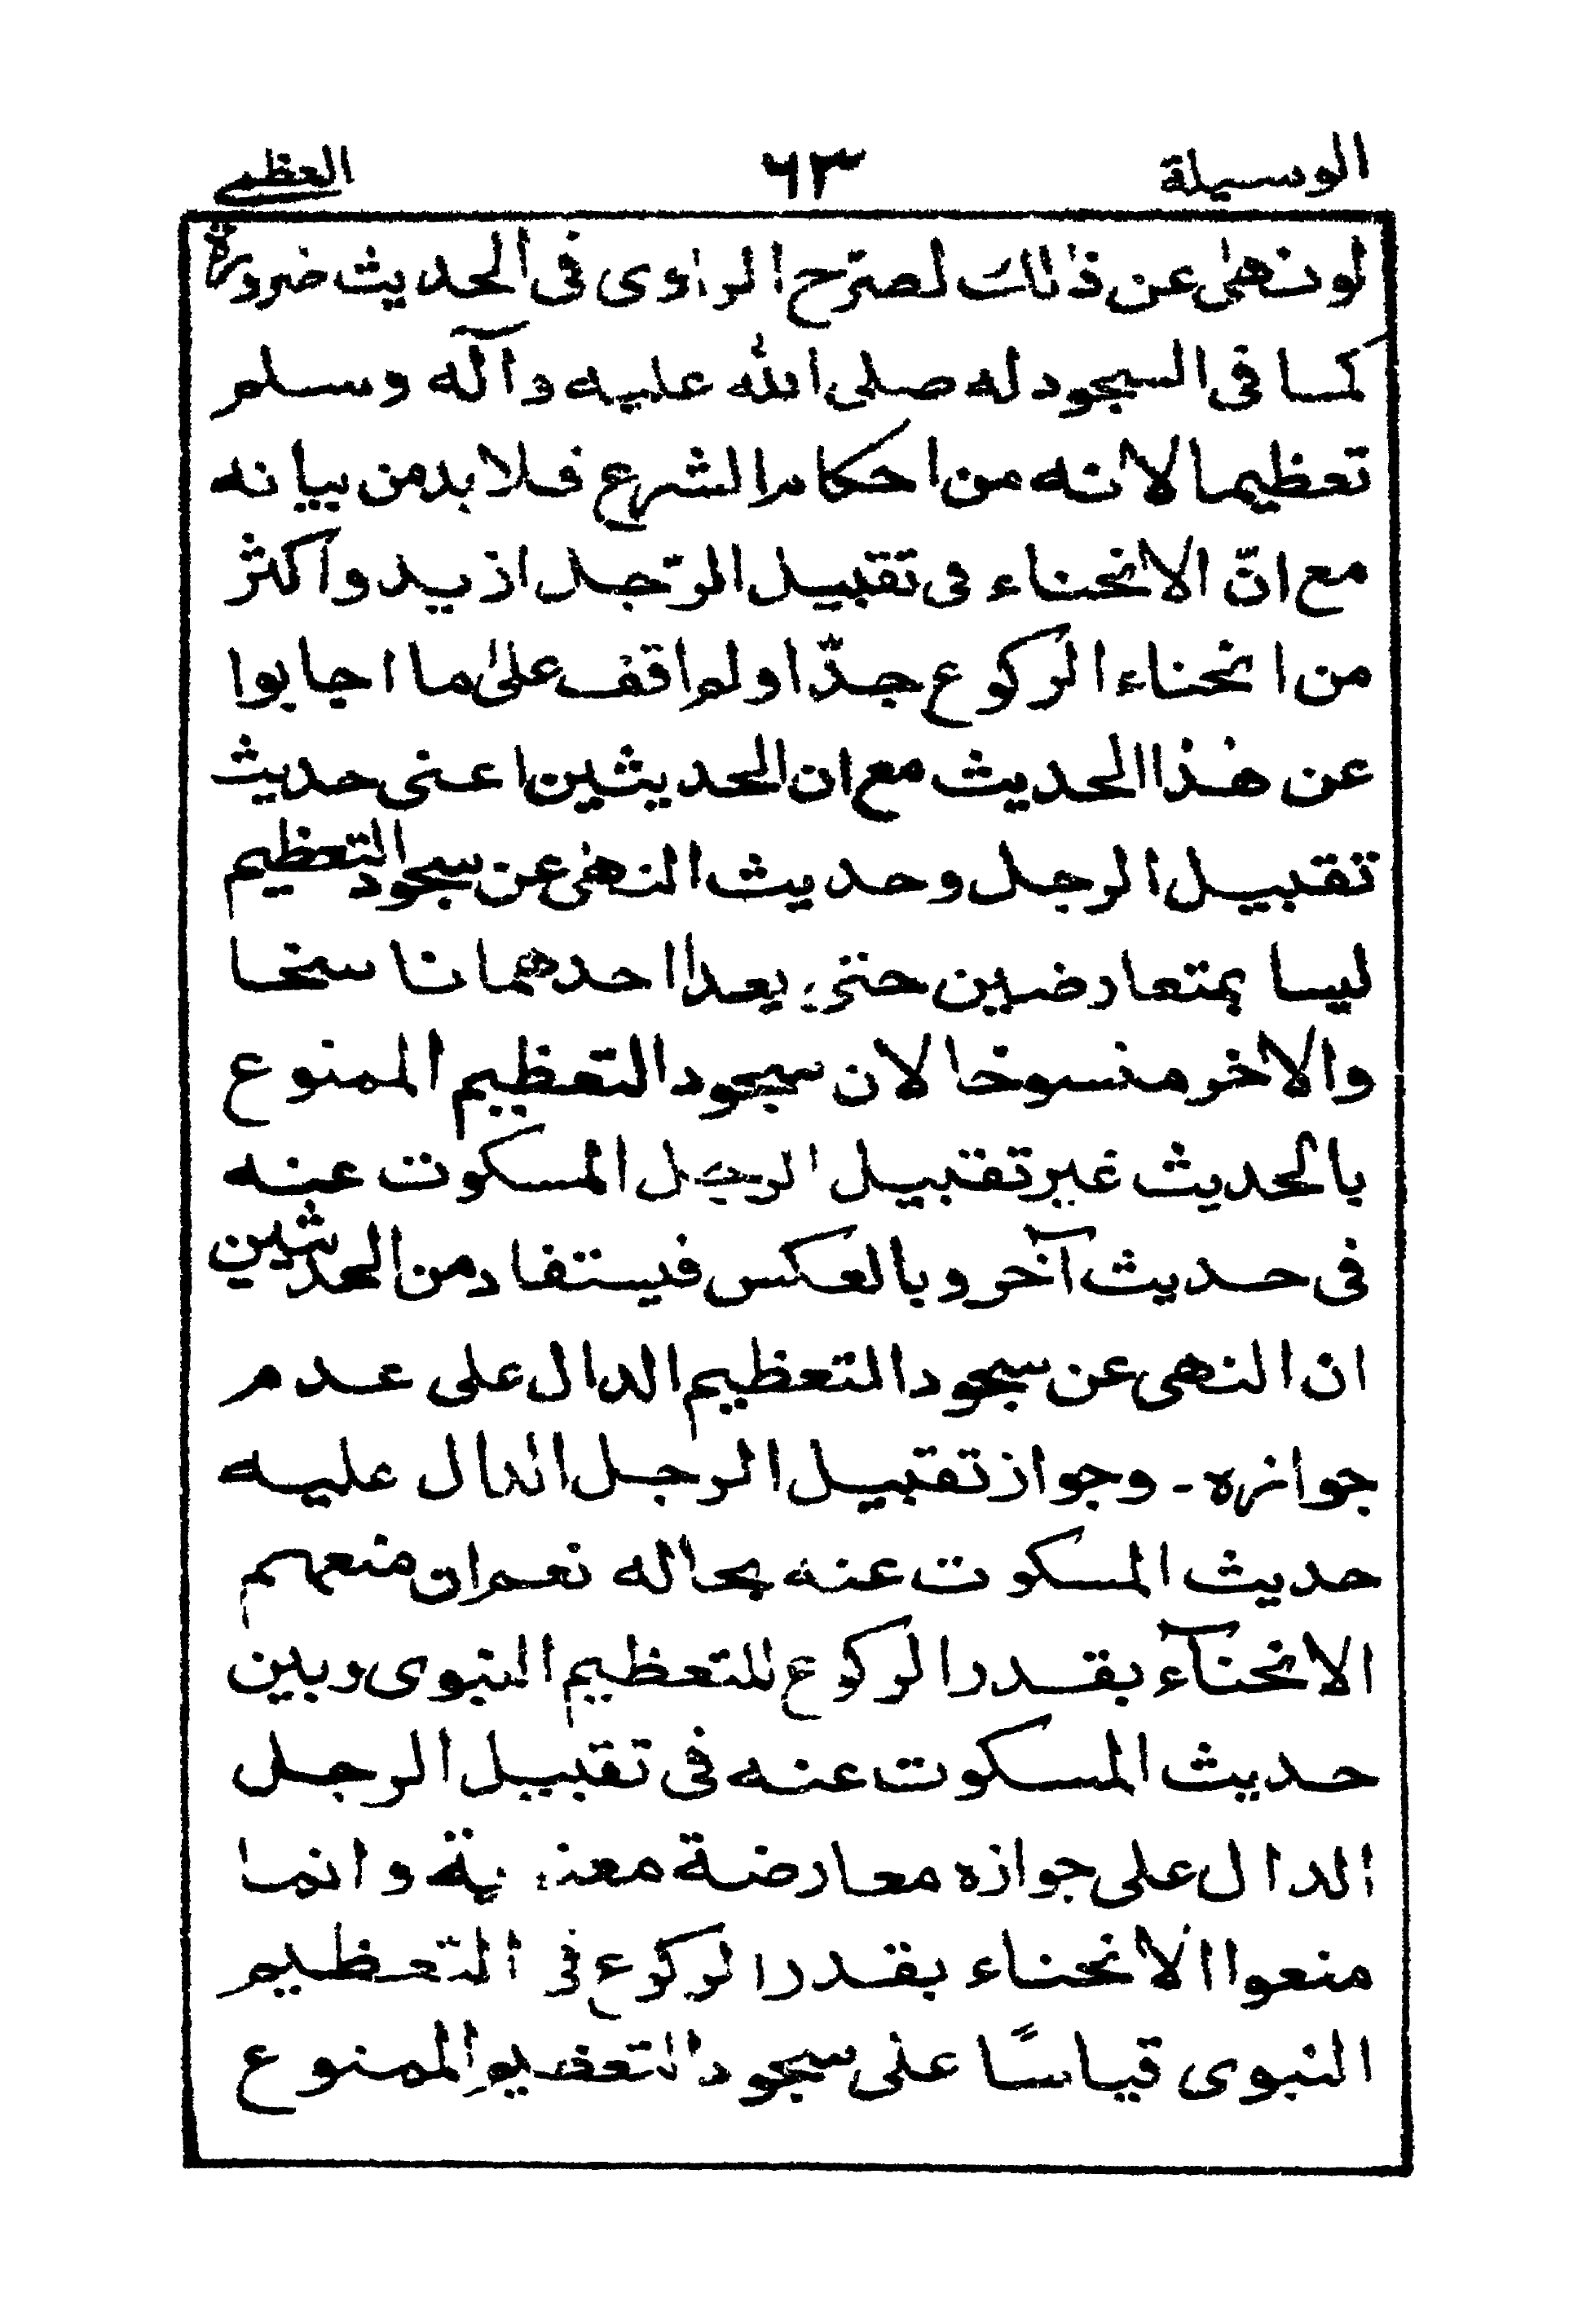 الوسيلة ٦٣ العظمى
لو نهى عن ذلك لصرّح الراوى فى الحديث ضرورة
كما فى السجود له صلى الله عليه وآله وسلم
تعظيما لانه من احكام الشرع فلا بد من بيانه
مع انّ الانحناء فى تقبيل الرّجل ازيد واكثر
من انحناء الركوع جدّا ولم اقف على ما اجابوا
عن هذا الحديث مع ان الحديثين اعنى حديث
تقبيل الرجل وحديث النهى عن سجود التعظيم
ليسا بمتعارضين حتى يعد احدهما ناسخا
والاخر منسوخا لان سجود التعظيم الممنوع
بالحديث غير تقبيل الرجل المسكوت عنه
فى حديث آخر وبالعكس فيستفاد من الحديثين
ان النهى عن سجود التعظيم الدال على عدم
جوازه - وجواز تقبيل الرجل الدال عليه
حديث المسكوت عنه بحاله نعم ان منعهم
الانحنآء بقدر الركوع للتعظيم النبوى وبين
حديث المسكوت عنه فى تقبيل الرجل
الدال على جوازه معارضة معنوية وانما
منعوا الانحناء بقدر الركوع فى التعظيم
النبوى قياسًا على سجود التعظيم الممنوع